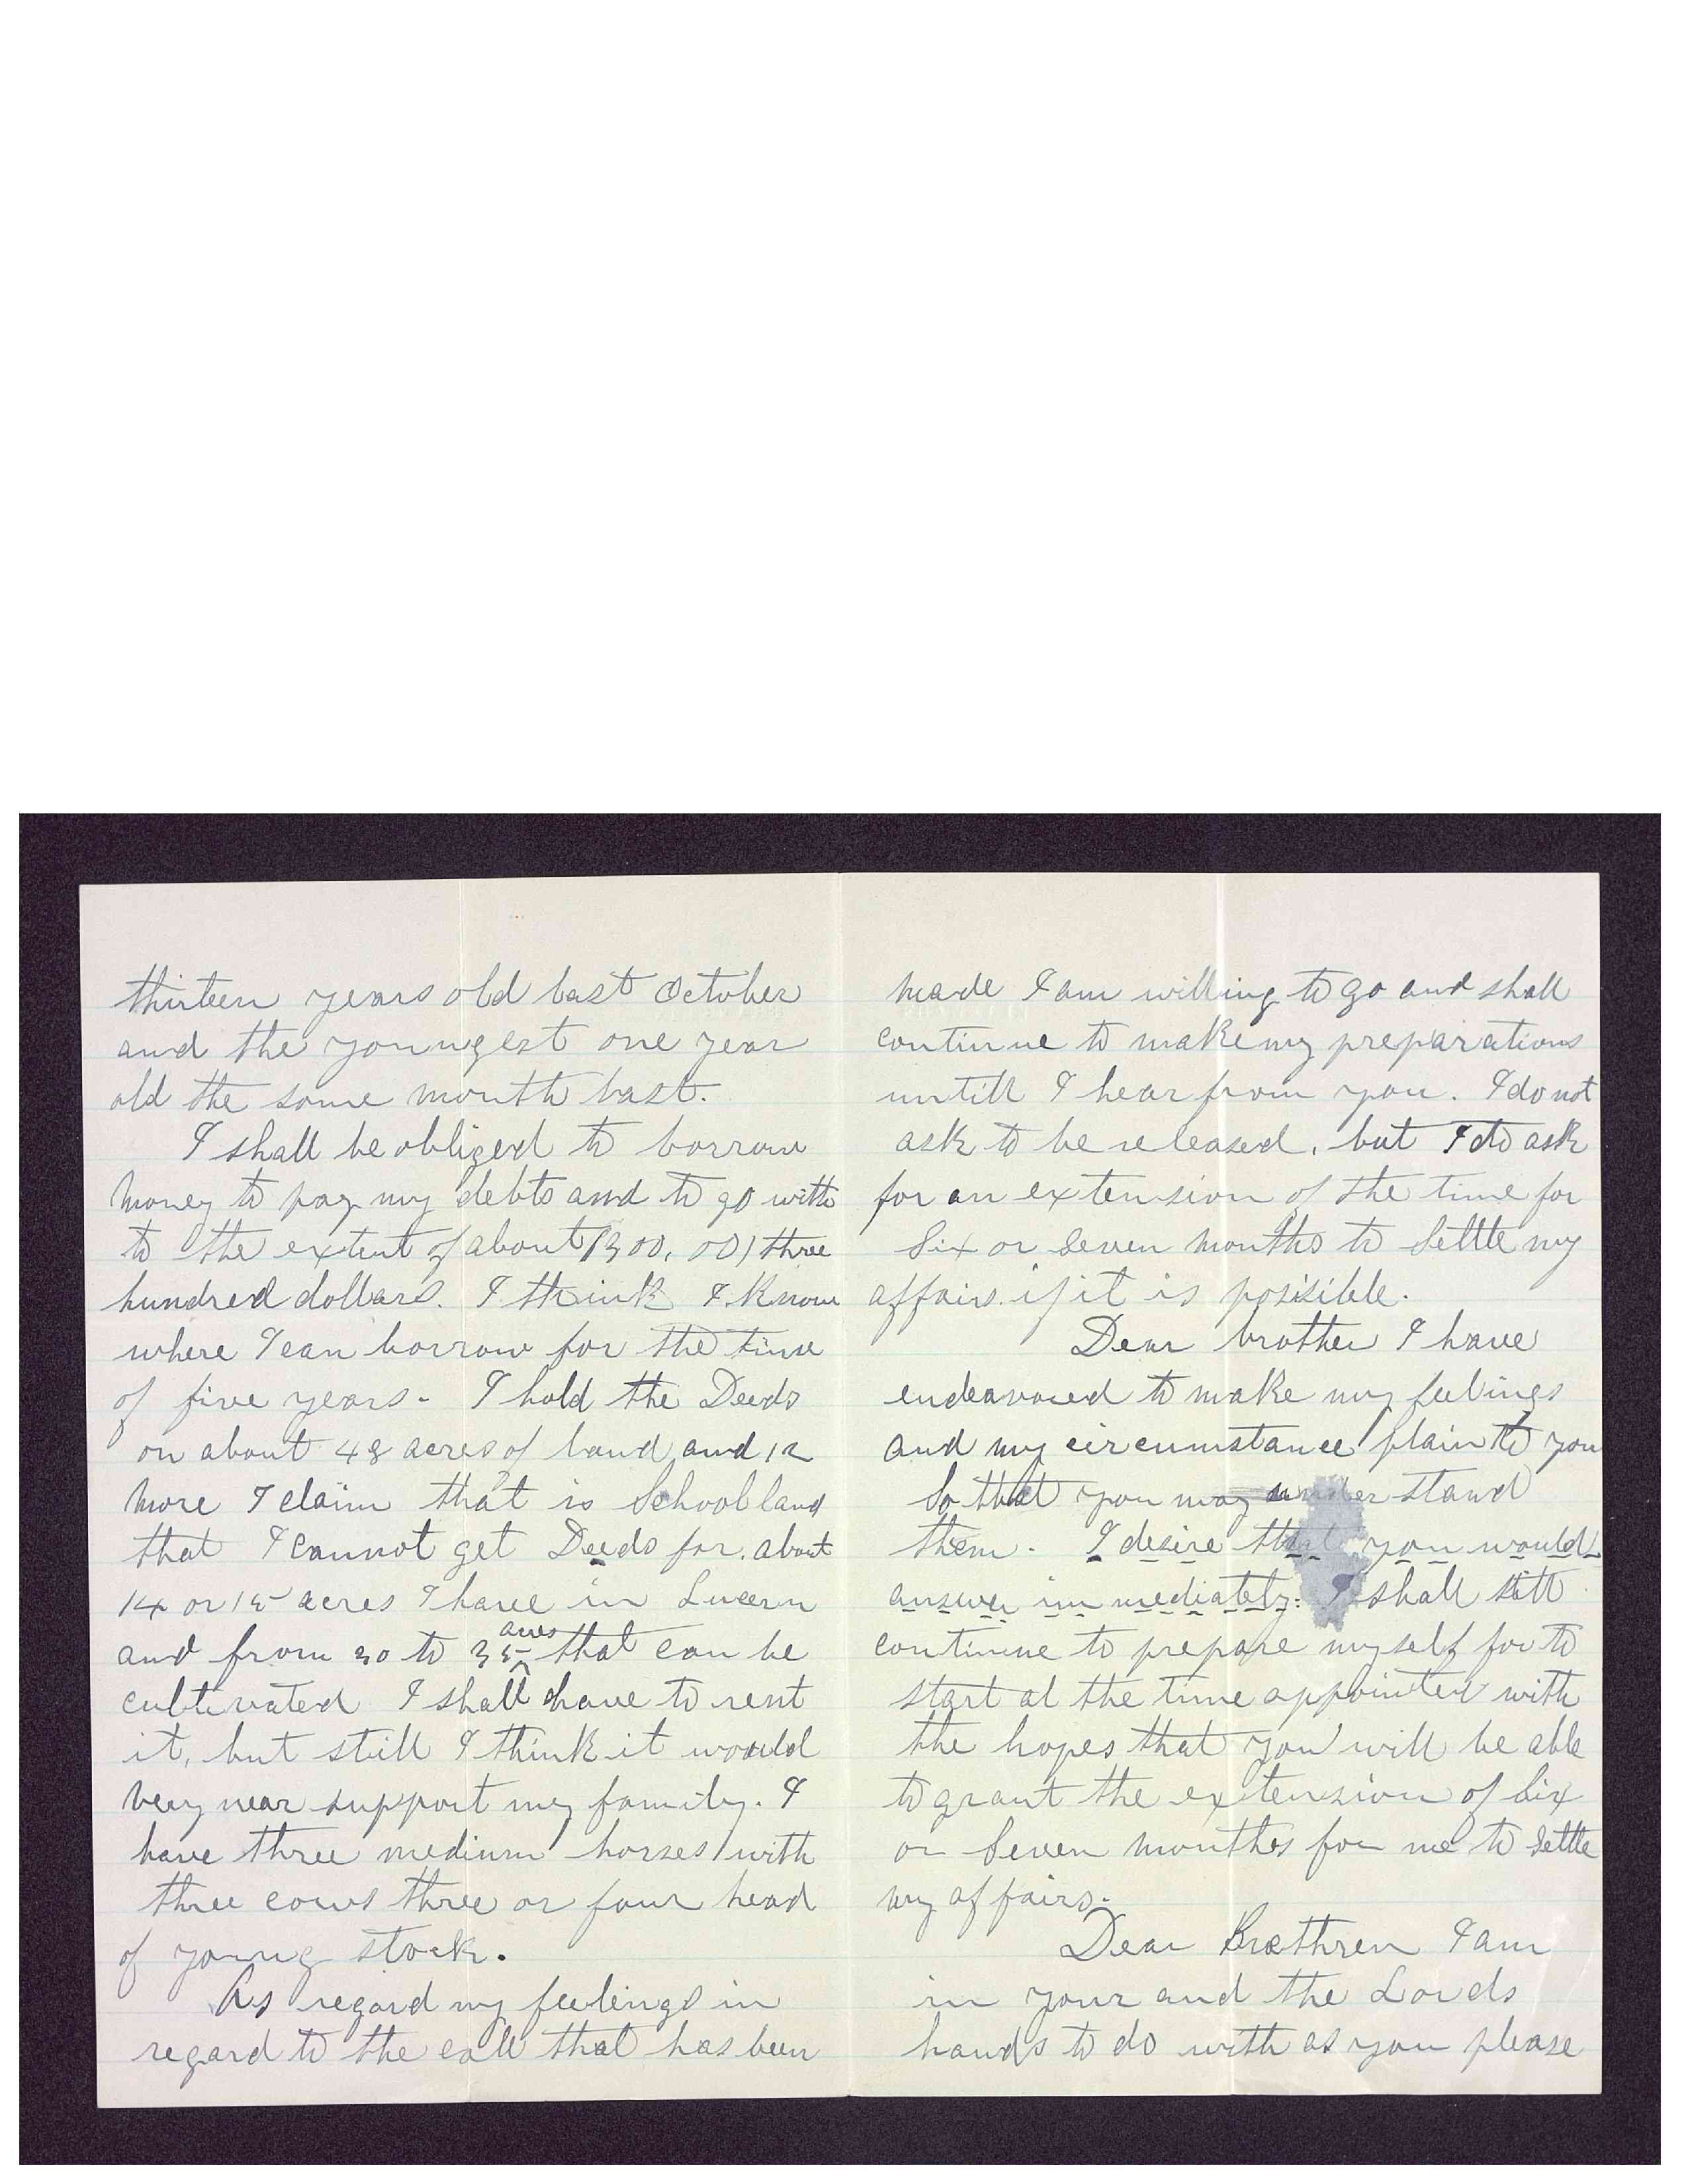 thirteen years old last October
and the youngest one year
old the same month last.
I shall be obliged to borrow
money to pay my debts and to go with
to the extent of about (300,00) three
hundred dollars. I think I know
where I can borrow for the time
of five years - I hold the Deeds
on about 48 acres of land and 12
more I claim that is School land
that I cannot get Deeds for. about
14 or 15 acres I have in Lucern
and from 30 to 35 acres that can be
cultivated I shall have to rent
it, but still I think it would
very near support my family. I
have three medium horses with
three cows three or four head
of young stock.
As regard my feelings in
regard to the call that has been
made I am willing to go and shall
continue to make my preparations
untill I hear from you. I do not
ask to be released, but I do ask
for an extension of the time for
Six or Seven months to Settle my
affairs. if it is posisible.
Dear brother I have
endeavored to make my feelings
and my circumstance plain to you
So that you may under stand
them - I desire that you would
answer immediately: I shall still
continue to prepare myself for to
start at the time appointed with
the hopes that you will be able
to grant the extension of Six
or Seven months for me to Settle
my affairs.
Dear Brethren I am
in your and the Lords
hands to do with as you please